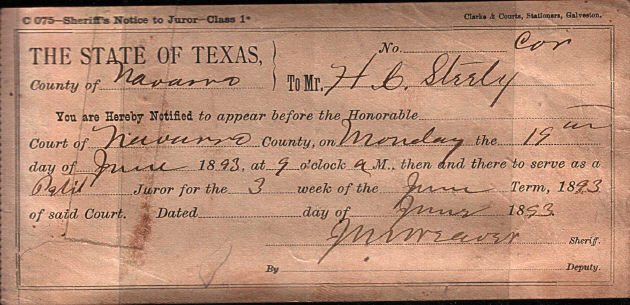 C 075—Sheriff's Notice to Juror—Class 1* Clarke & Courts, Stationers, Galveston.
THE STATE OF TEXAS, No. Cor
County of Navarro To Mr. H. C. Steely
You are Hereby Notified to appear before the Honorable
Court of Navarro County, on Monday the 19
day of June 1893, at 9 o'clock a M., then and there to serve as a
Petit Juror for the 3 week of the June Term, 1893
of said Court. Dated day of June 1893.
Weaver Sheriff.
By Deputy.